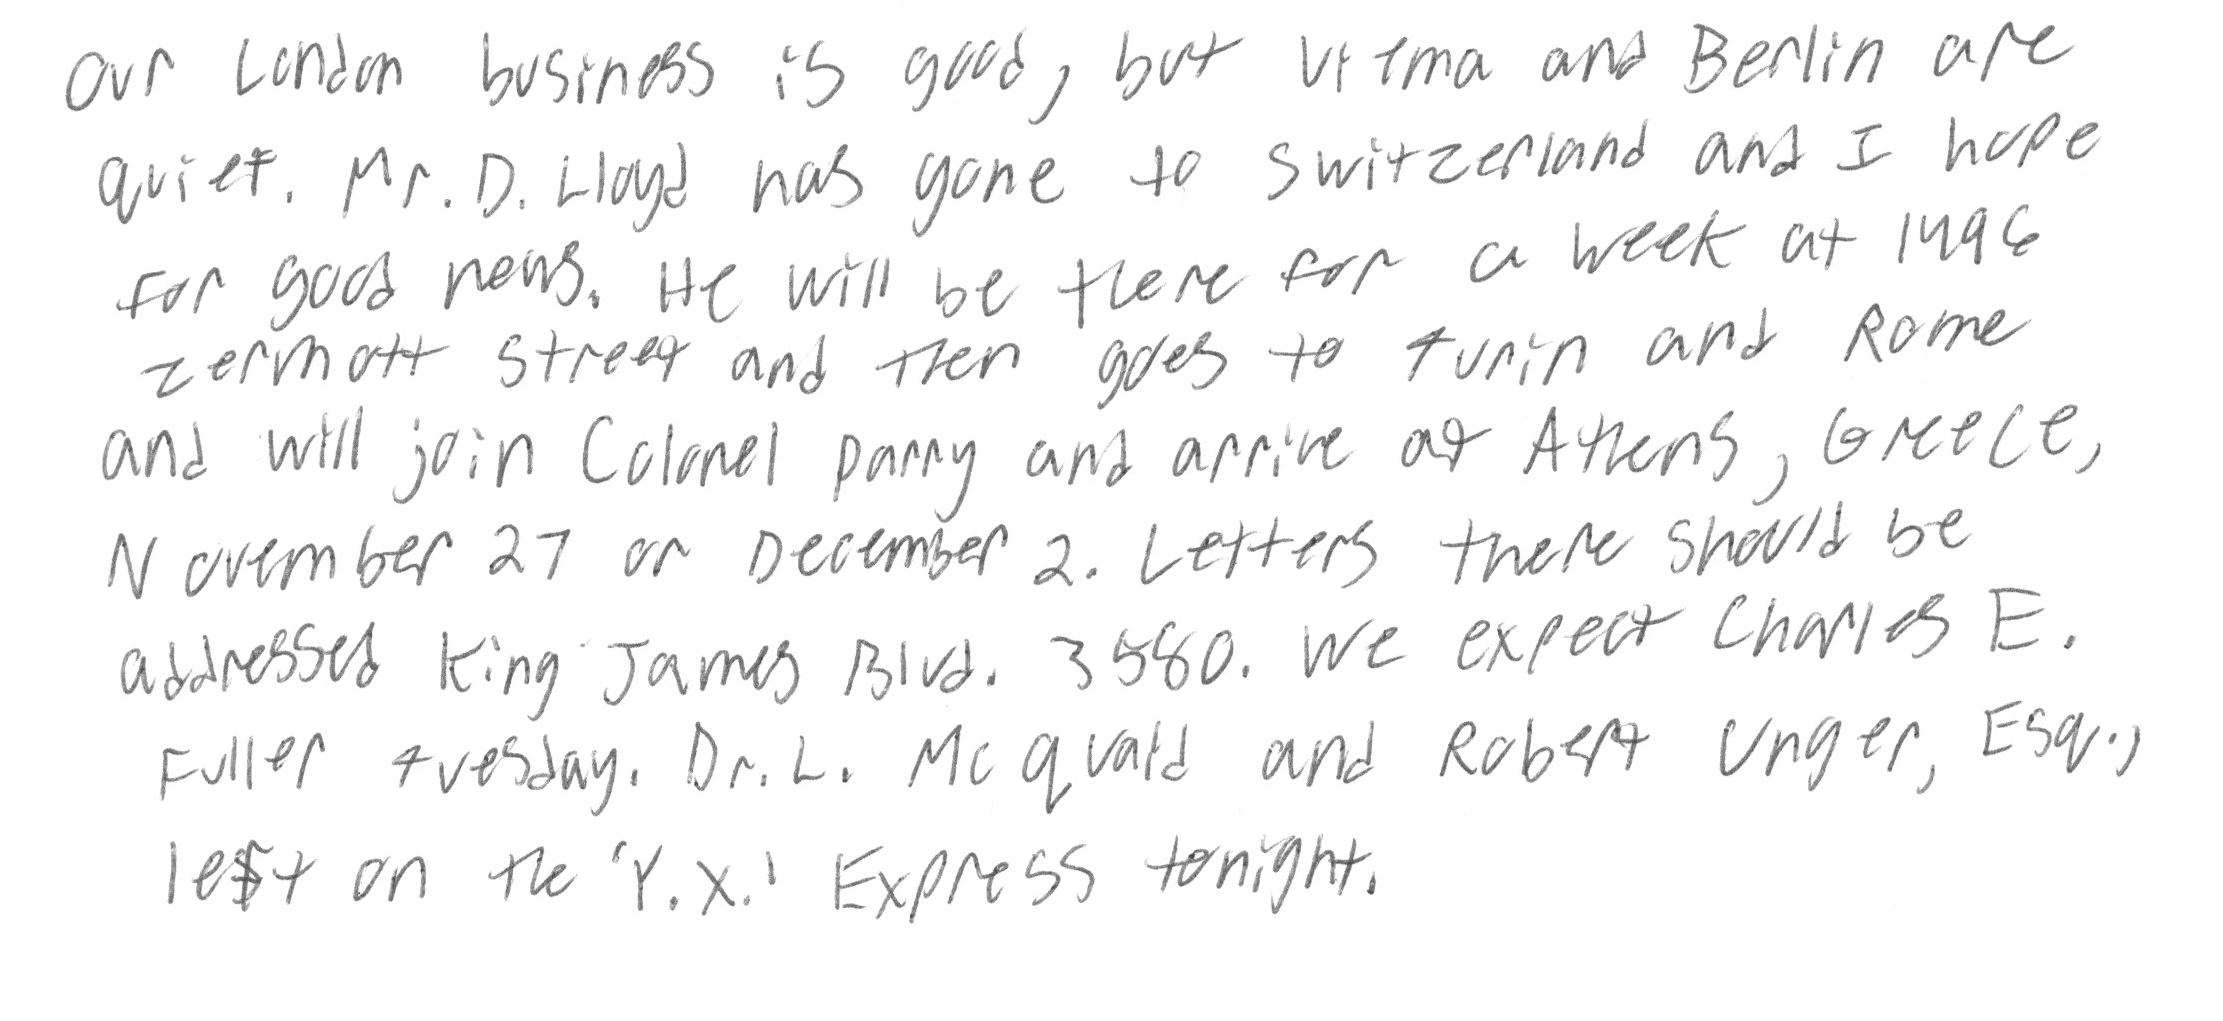 Our London business is good, but Vienna and Berlin are
quiet. Mr. D. Lloyd has gone to Switzerland and I hope
for good news. He will be there for a week at 1496
Zermott Street and then goes to Turin and Rome
and will join Colonel Parry and arrive at Athens, Greece,
November 27 or December 2. Letters there should be
addressed King James Blvd. 3580. We expect Charles E.
Fuller Tuesday. Dr. L. McQuaid and Robert Unger, Esq.,
left on the 'Y.X.' Express tonight.